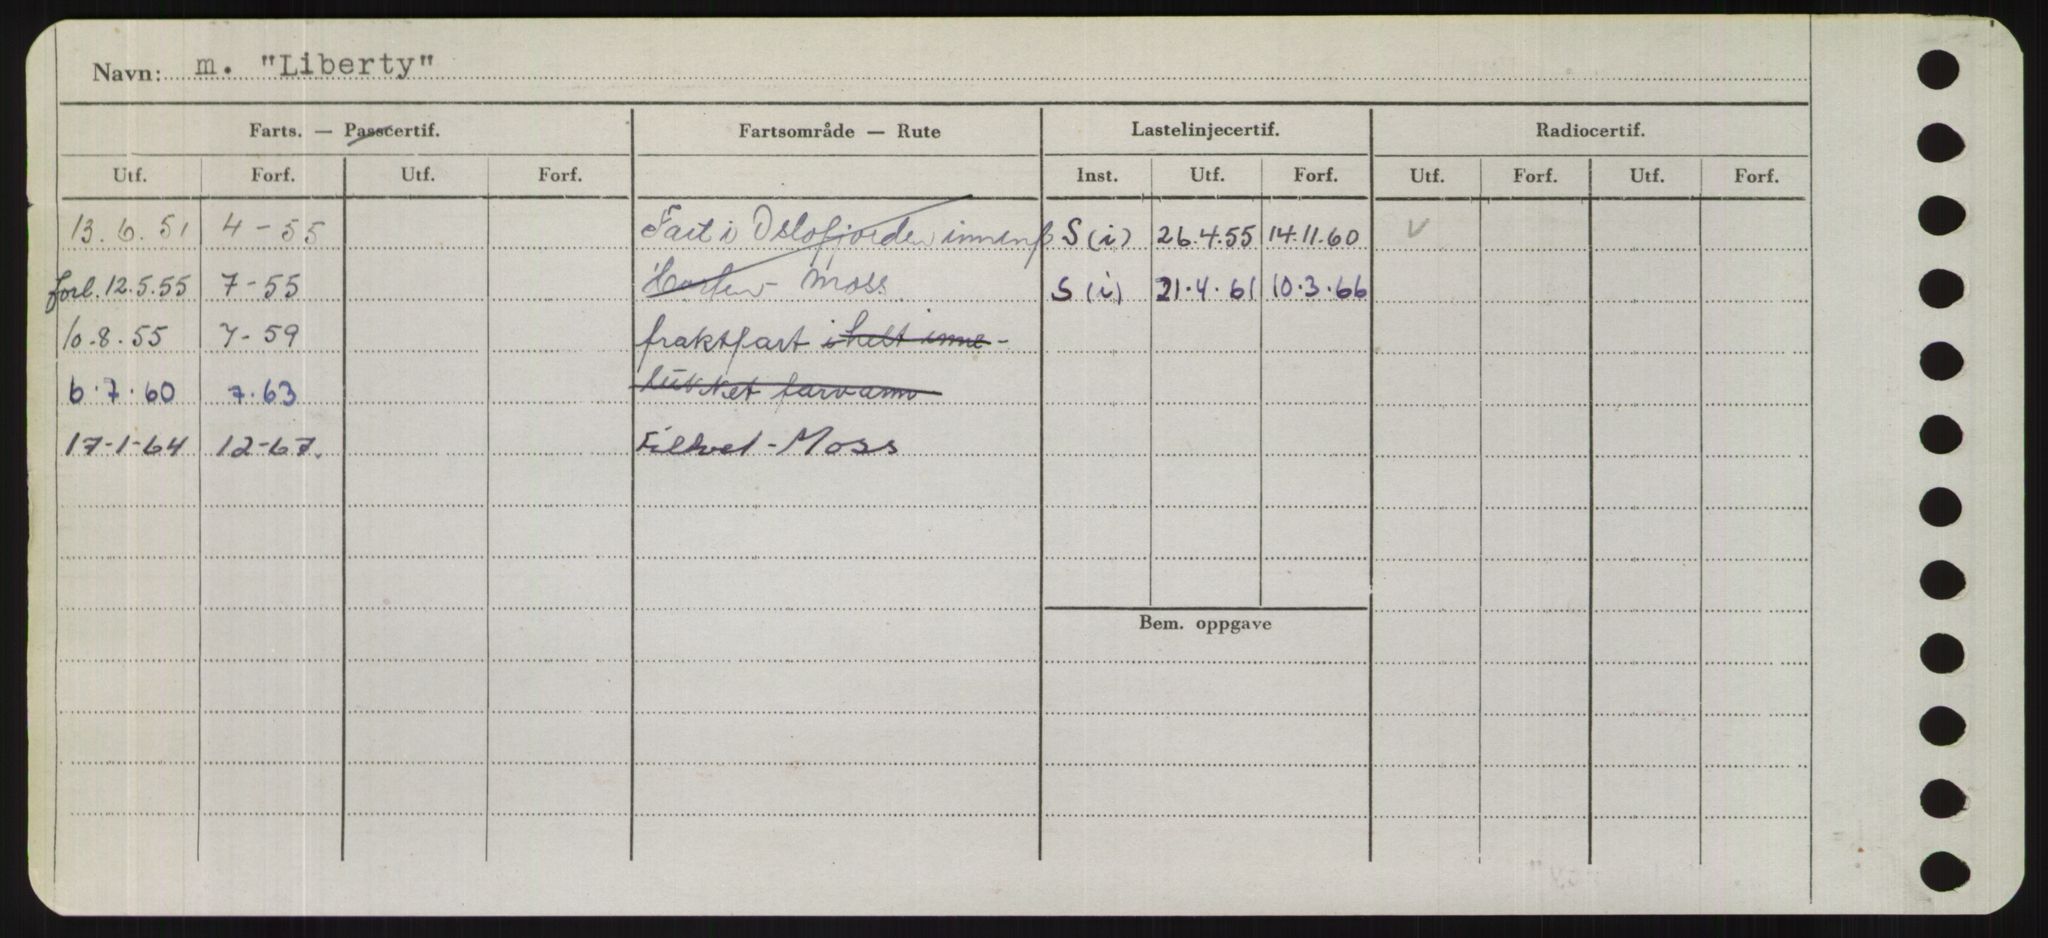 Navn: m. "Liberty"
Farts. — Passcertif. Fartsområde — Rute Lastelinjecertif. Radiocertif.
Utf. Forf. Utf. Forf. Inst. Utf. Forf. Utf. Forf. Utf. Forf.
13.6.51 4-55 Fart i Oslofjorden innenf S (i) 26.4.55 14.11.60 v
forl. 12.5.55 7-55 Horten - Moss S (i) 21.4.61 10.3.66
10.8.55 7-59 fraktfart i helt inne-
6.7.60 7.63 lukket farvann
17-1-64 12-67. Filtvet - Moss
Bem. oppgave